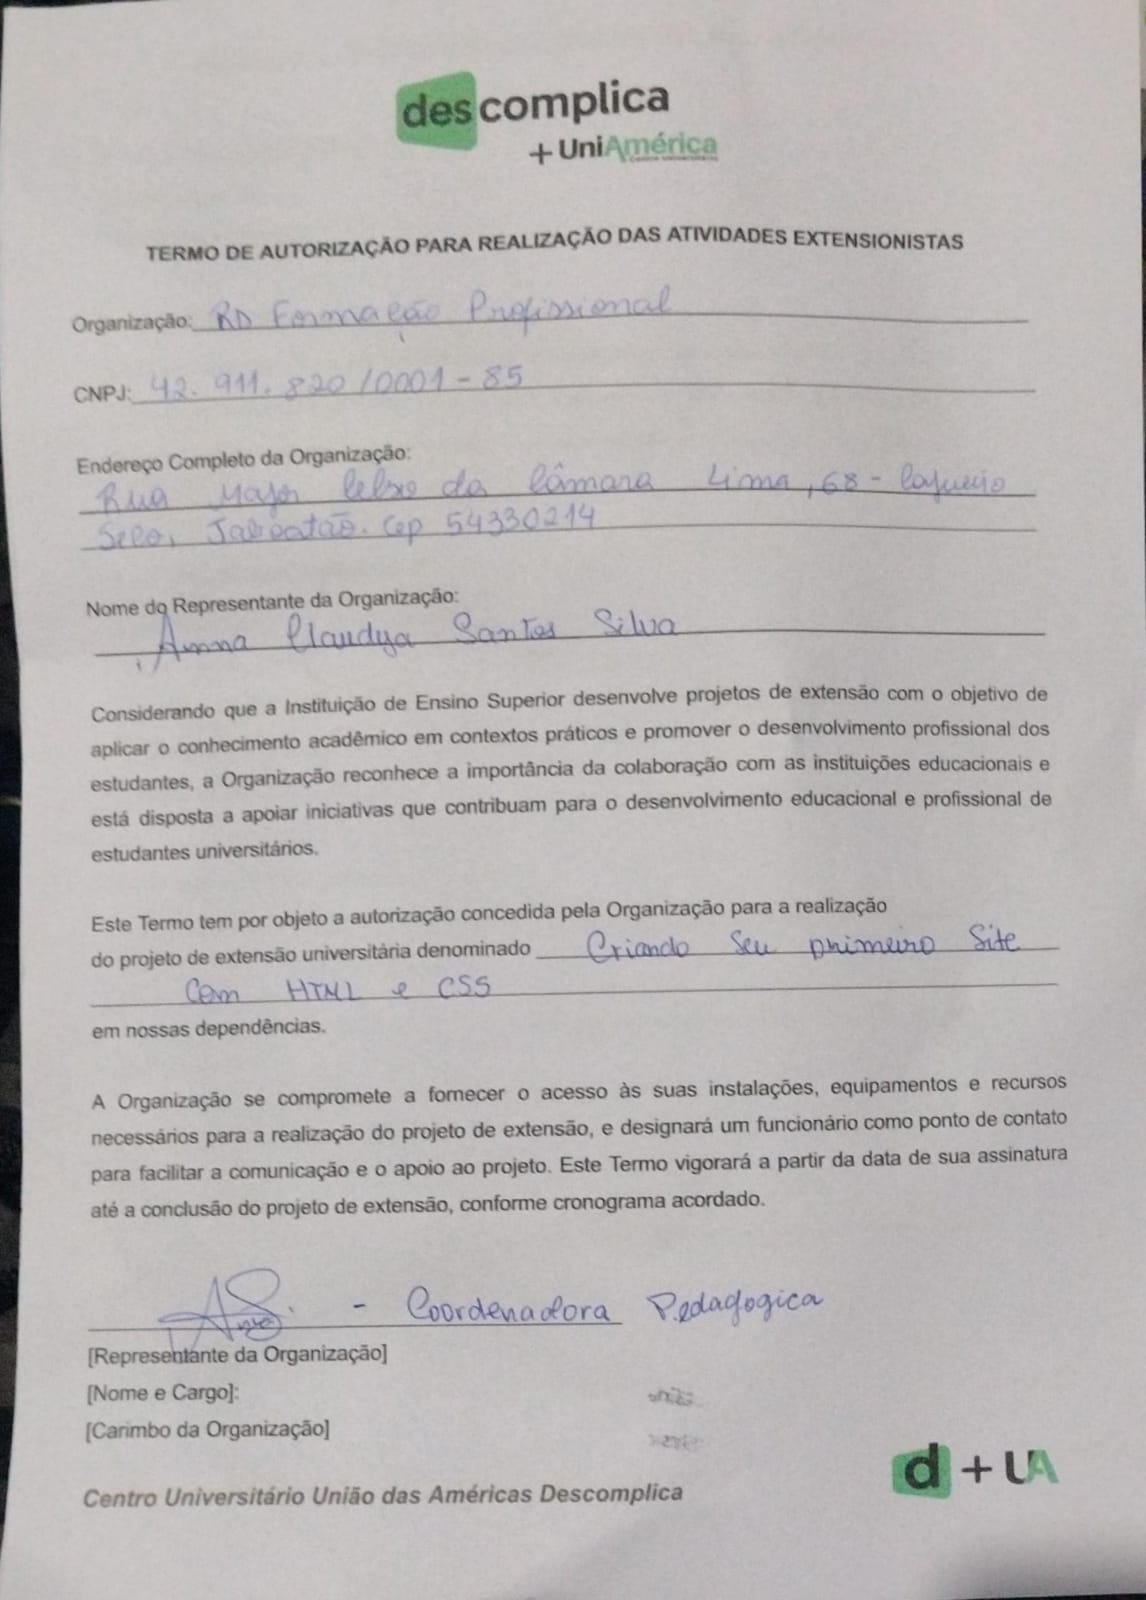 descomplica
+ UniAmérica
TERMO DE AUTORIZAÇÃO PARA REALIZAÇÃO DAS ATIVIDADES EXTENSIONISTAS
Organização: RD Formação Profissional
CNPJ: 42.911.820/0001-85
Endereço Completo da Organização:
Rua Major Celso da Câmara Lima, 68 -
Jaboatão. Cep 54330214
Nome do Representante da Organização:
Anna Claudya Santos Silva
Considerando que a Instituição de Ensino Superior desenvolve projetos de extensão com o objetivo de
aplicar o conhecimento acadêmico em contextos práticos e promover o desenvolvimento profissional dos
estudantes, a Organização reconhece a importância da colaboração com as instituições educacionais e
está disposta a apoiar iniciativas que contribuam para o desenvolvimento educacional e profissional de
estudantes universitários.
Este Termo tem por objeto a autorização concedida pela Organização para a realização
do projeto de extensão universitária denominado Criando Seu primeiro Site
Com HTML e CSS
em nossas dependências.
A Organização se compromete a fornecer o acesso às suas instalações, equipamentos e recursos
necessários para a realização do projeto de extensão, e designará um funcionário como ponto de contato
para facilitar a comunicação e o apoio ao projeto. Este Termo vigorará a partir da data de sua assinatura
até a conclusão do projeto de extensão, conforme cronograma acordado.
- Coordenadora Pedagogica
[Representante da Organização]
[Nome e Cargo]:
[Carimbo da Organização]
d + UA
Centro Universitário União das Américas Descomplica